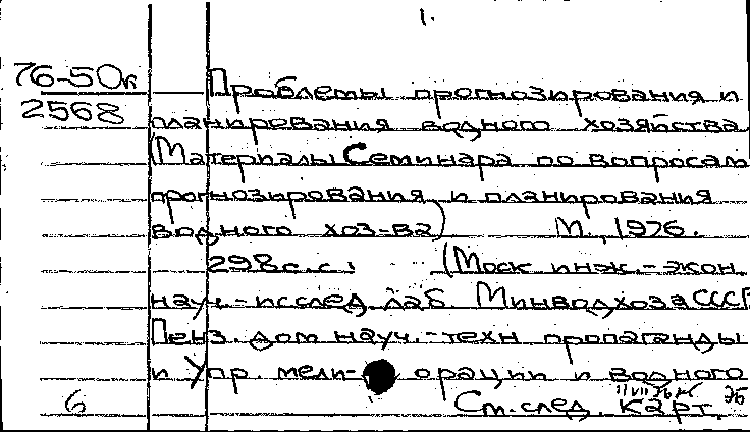 1.
76-50к
2568
Проблемы прогнозирования и
планирования водного хозяйства
(Материалы Семинара по вопросам
прогнозирования и планирования
водного хоз-ва) М., 1976.
298с.с.
(Моск инж.-экон.
науч.-исслед. лаб. Минводхоза СССР
Пенз. дом науч.-техн пропаганды
и Упр. мели- орации и водного
6
См. след. карт. 76